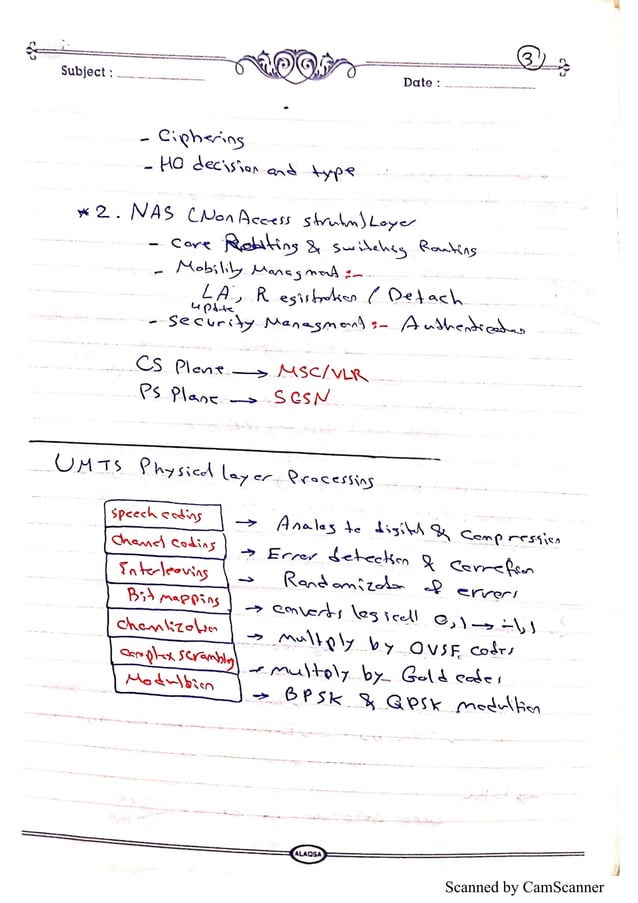 3
Subject :
Date :
- Ciphering
- HO decision and type
* 2. NAS (Non Access stratum) Layer
- Core Routing & switching Routing
- Mobility Managment :-
LA, Registration / Detach
update
- Security Managment :- Authentication
CS Plane → MSC/VLR
PS Plane → SGSN
UMTS Physical layer Processing
Speech coding → Analog to digital & Compression
Channel coding → Error detection & Correction
Interleaving → Randomization of errors
Bit mapping → converts logicall 0,1 → 1,-1
Chanlization → multiply by OVSF codes
Complex scrambling → multiply by Gold codes
Modulation → BPSK & QPSK modultion
ALAQSA
Scanned by CamScanner